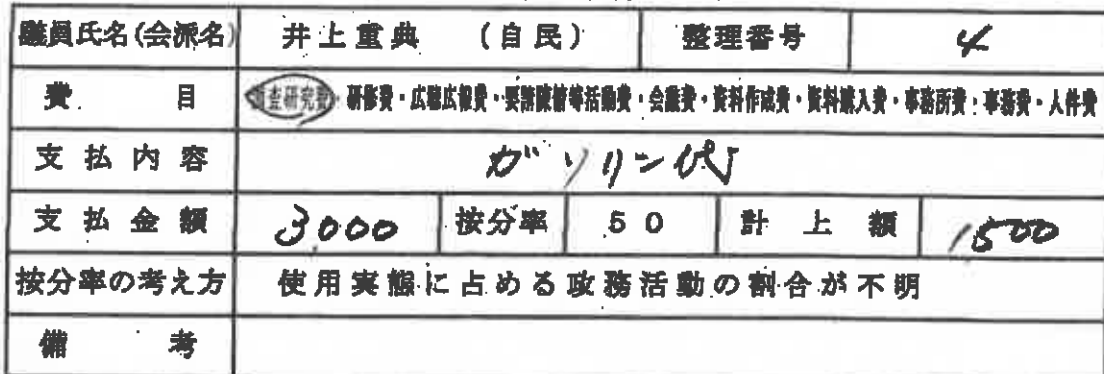 議員氏名(会派名) 井上重典 (自民) 整理番号 4
費目 調査研究費・研修費・広聴広報費・要請陳情等活動費・会議費・資料作成費・資料購入費・事務所費・事務費・人件費
支払内容 ガソリン代
支払金額 3000 按分率 50 計上額 1500
按分率の考え方 使用実態に占める政務活動の割合が不明
備考